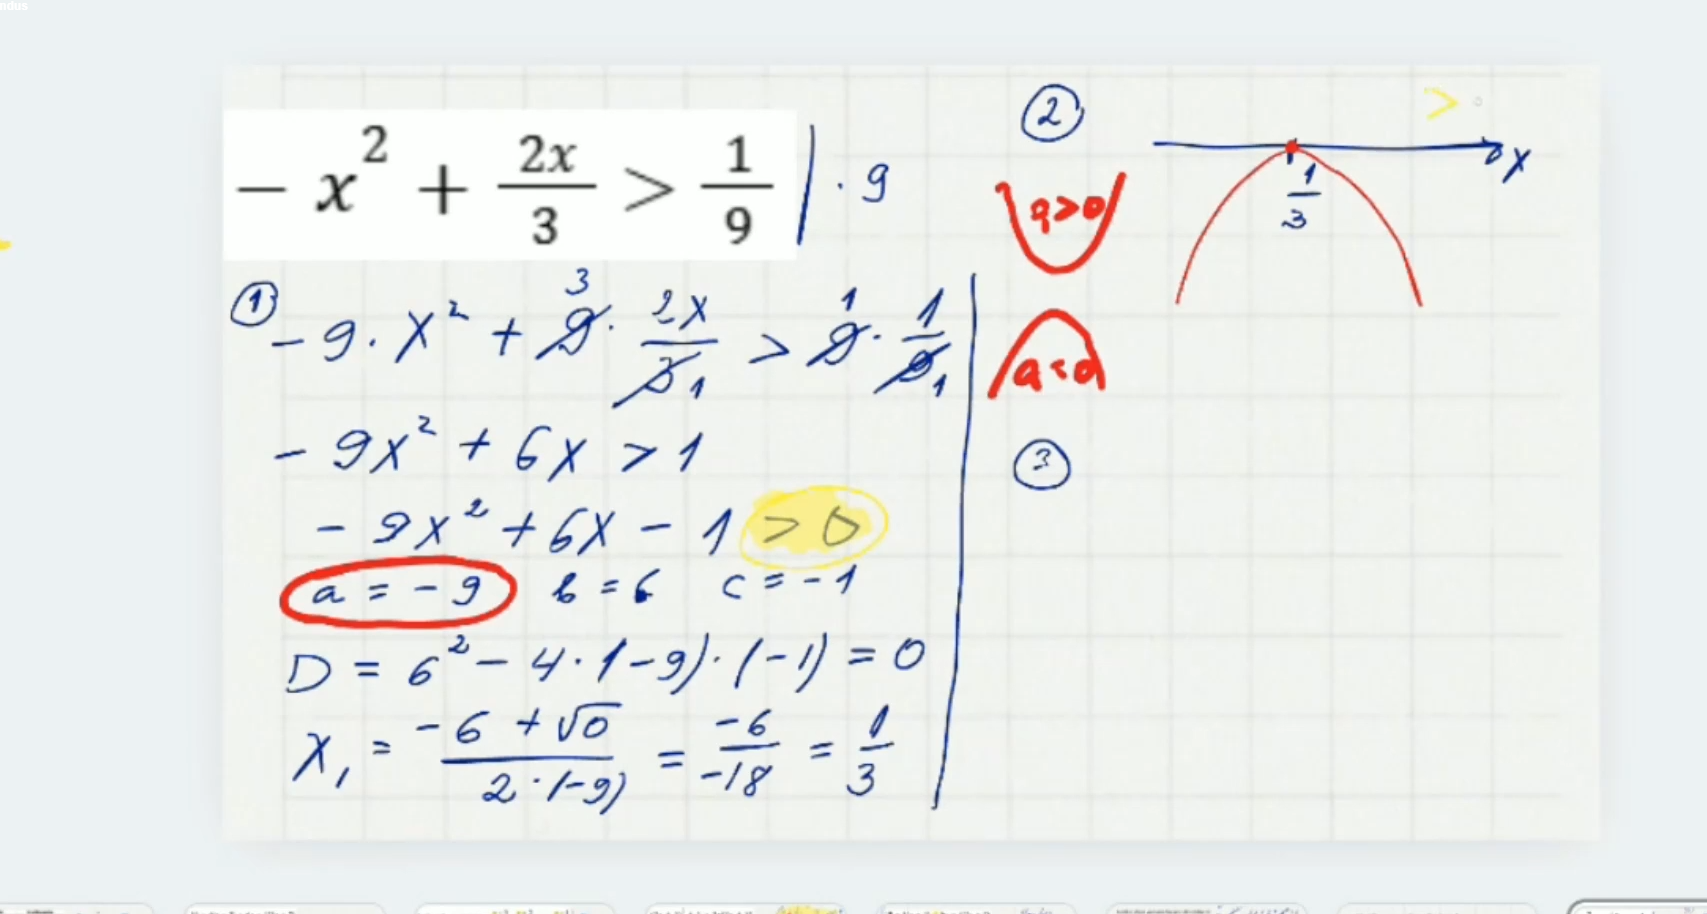 ndus
- x² + 2x/3 > 1/9 | · 9
①
- 9 · x² + 9 3 · 2x/3 1 > 9 1 · 1/9 1
- 9x² + 6x > 1
- 9x² + 6x - 1 > 0
a = -9 b = 6 c = -1
D = 6² - 4 · (-9) · (-1) = 0
x₁ = (-6 + √0)/(2 · (-9)) = -6/-18 = 1/3
②
>
x
1/3
a>0
a<0
③